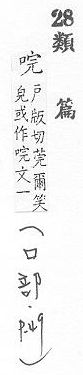 28
類篇
唍 戶版切莞爾笑
皃或作唍文一
(口部. p.49)